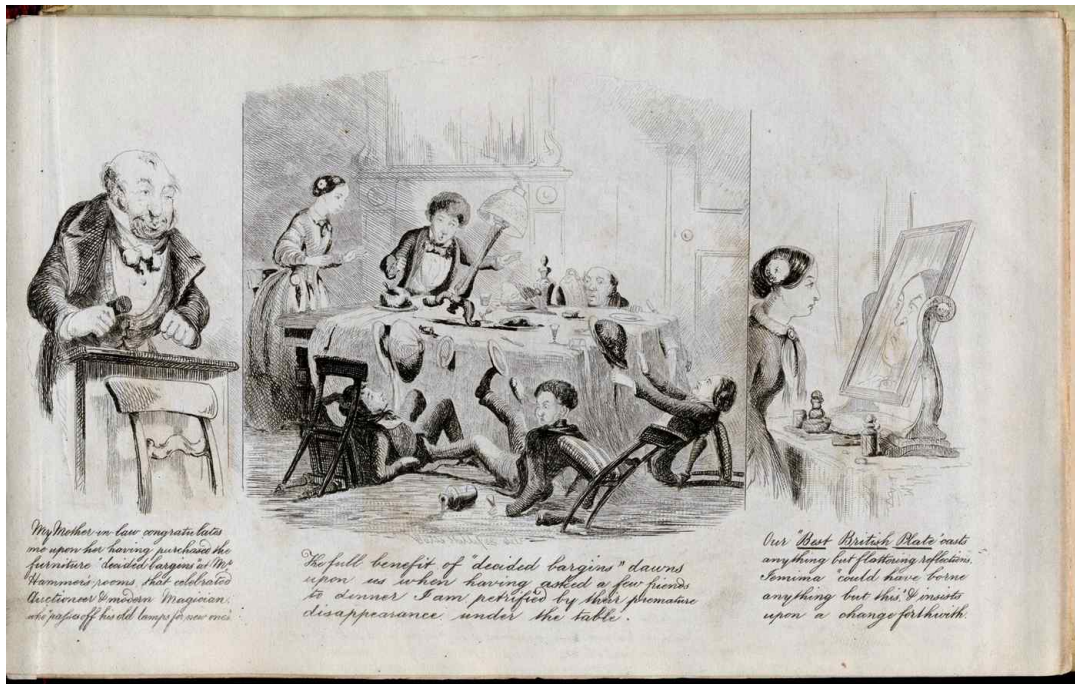 My Mother-in-law congratulates
me upon her having purchased the
furniture "decided bargins" at Mr
Hammer's rooms, that celebrated
Auctioneer & modern Magician.
who "passes off his old lamps for new ones"
The full benefit of "decided bargins" dawns
upon us when having asked a few friends
to dinner I am petrified by their premature
disappearance under the table.
Our "Best British Plate" casts
anything but flattering reflections.
Jemima "could have borne
anything but this," & insists
upon a change forthwith.